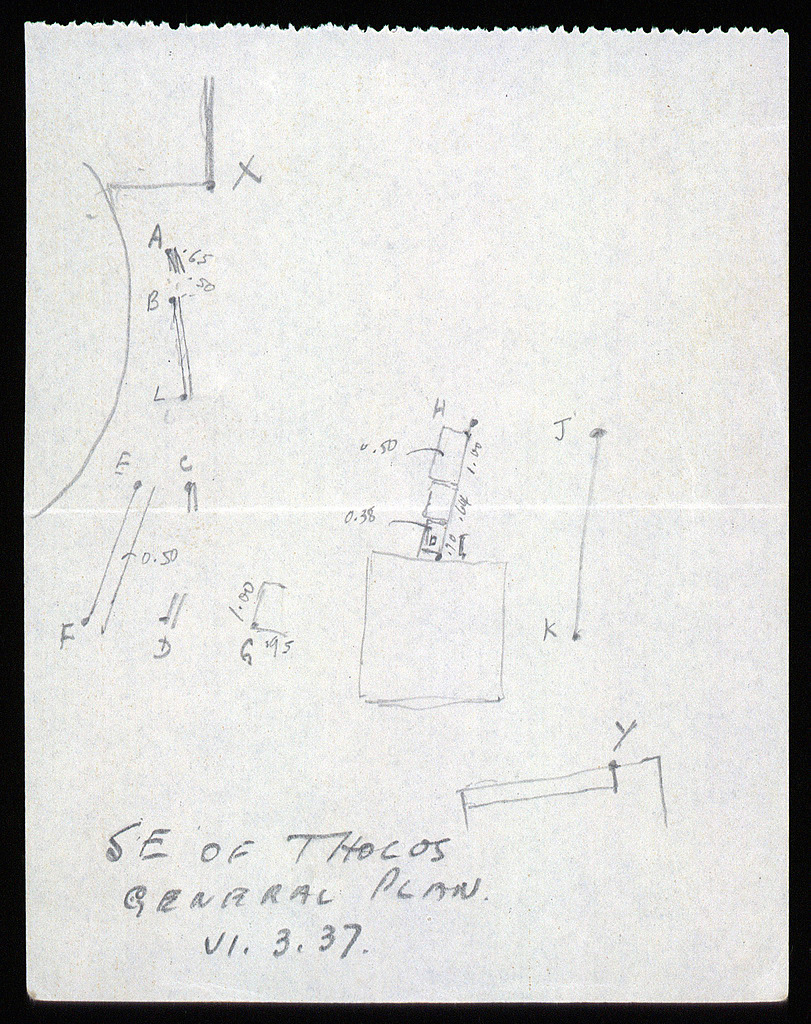 X
A
.65
.50
B
L
H
J
0.50
1.00
E
C
.64
0.38
.70
0.50
1.00
F
D
G
.95
K
Y
SE OF THOLOS
GENERAL PLAN.
VI. 3. 37.